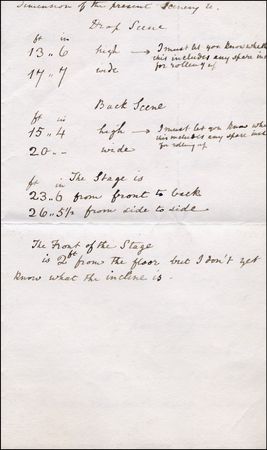 Dimension of the present Scenery &c.
Drop Scene
ft in
13 .. 6 high → I must let you know whether
this includes any spare
for rolling up
17 .. 7 wide
Back Scene
ft in
15 .. 4 high → I must let you know whe
this includes any spare
for rolling up
20 .. - wide
ft in The Stage is
23 .. 6 from front to back
26 .. 5½ from side to side
The Front of the Stage
is 2 ft from the floor but I don't yet
know what the incline is -